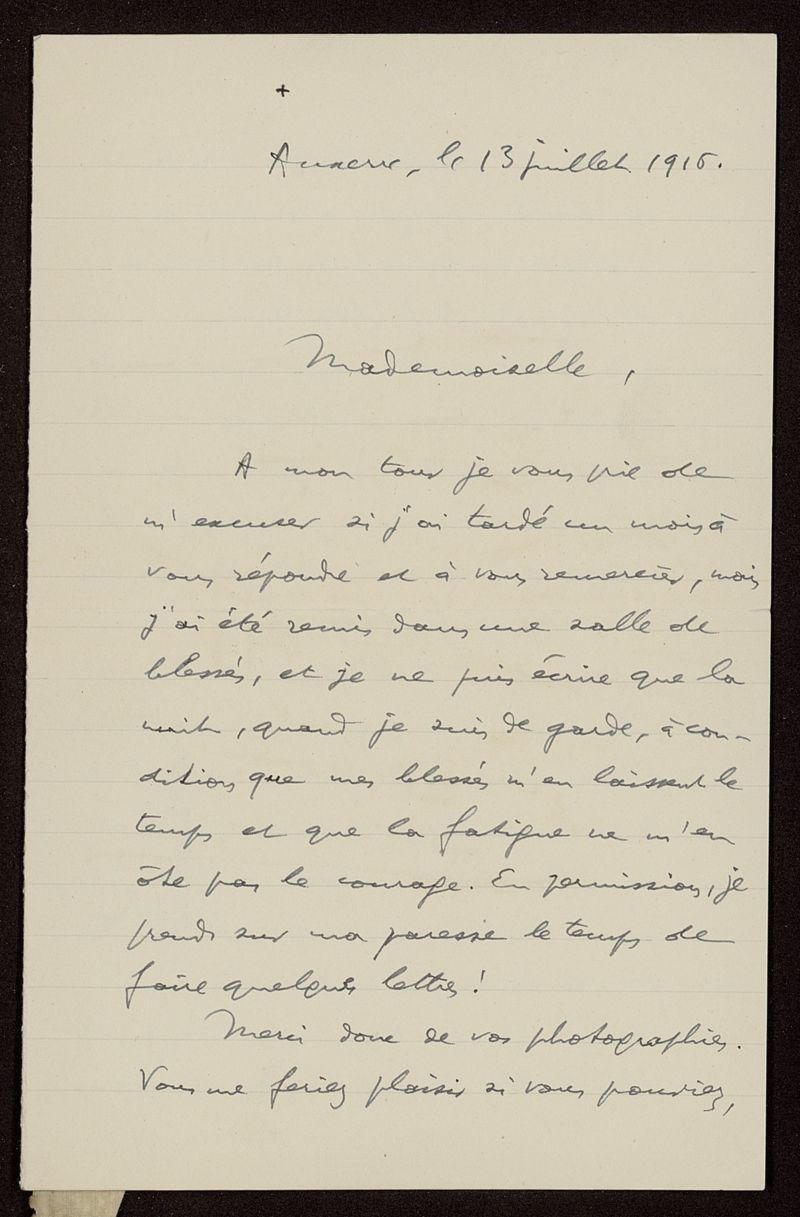 +
Auxerre, le 13 juillet 1916.
Mademoiselle,
A mon tour je vous prie de
m'excuser si j'ai tardé un mois à
vous répondre et à vous remercier, mais
j'ai été remis dans une salle de
blessés, et je ne puis écrire que la
nuit, quand je suis de garde, à con-
dition que mes blessés m'en laissent le
temps et que la fatigue ne m'en
ôte pas le courage. En permission, je
prends sur ma paresse le temps de
faire quelques lettres !
Merci donc de vos photographies.
Vous me feriez plaisir si vous pouviez,